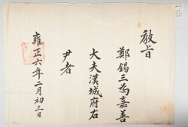 敎旨
鄭錫三爲嘉善
大夫漢城府右
尹者
雍正六年二月初二日